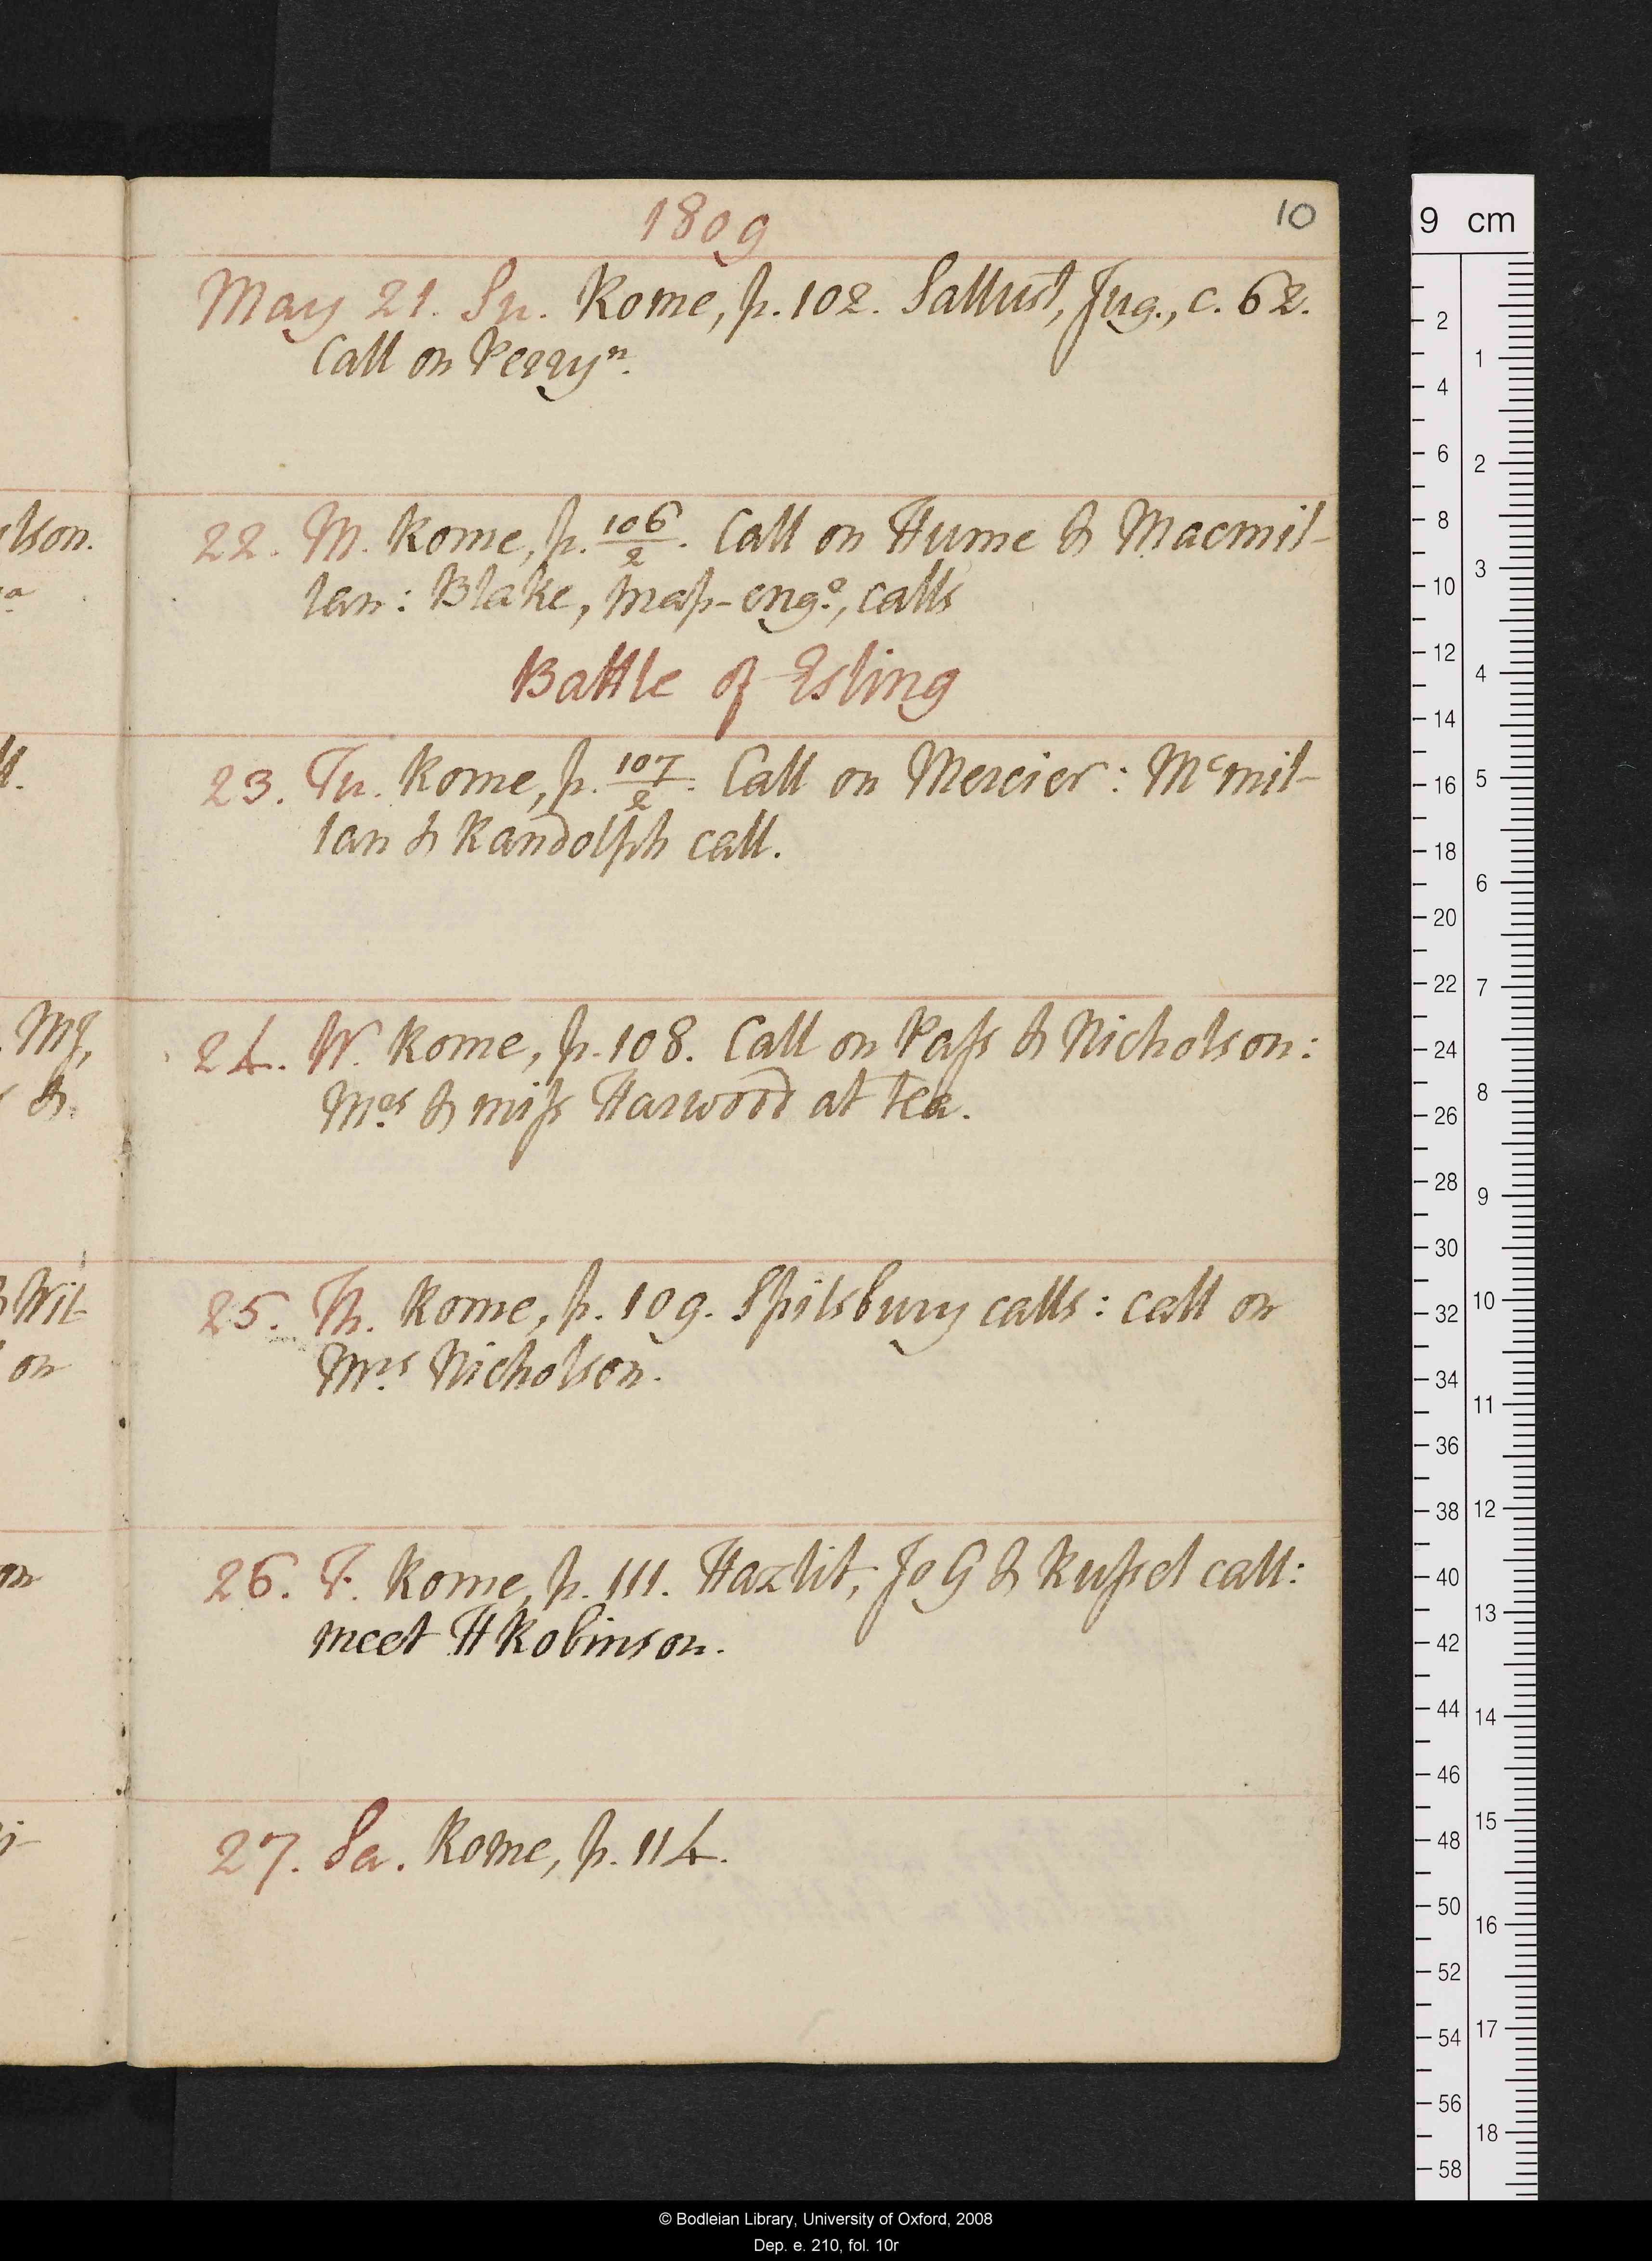 1809
10
May 21. Su. Rome, p. 102. Sallust, Jug., c. 62.
Call on Perryⁿ.
22. M. Rome, p. 106/2. Call on Hume & Macmil-
lan: Blake, map-engʳ, calls
Battle of Esling
23. Tu. Rome, p. 107/2. Call on Mercier: Mᶜmil-
lan & Randolph call.
24. W. Rome, p. 108. Call on Pass & Nicholson:
Mrs & miss Harwood at tea.
25. Th. Rome, p. 109. Spilsbury calls: call on
Mrs Nicholson.
26. F. Rome, p. 111. Hazlit, Jo G & Russel call:
meet H Robinson.
27. Sa. Rome, p. 114.
lson.
MJ,
&
Wil
on
on
9 cm
2
4
6
8
10
12
14
16
18
20
22
24
26
28
30
32
34
36
38
40
42
44
46
48
50
52
54
56
58
1
2
3
4
5
6
7
8
9
10
11
12
13
14
15
16
17
18
© Bodleian Library, University of Oxford, 2008
Dep. e. 210, fol. 10r